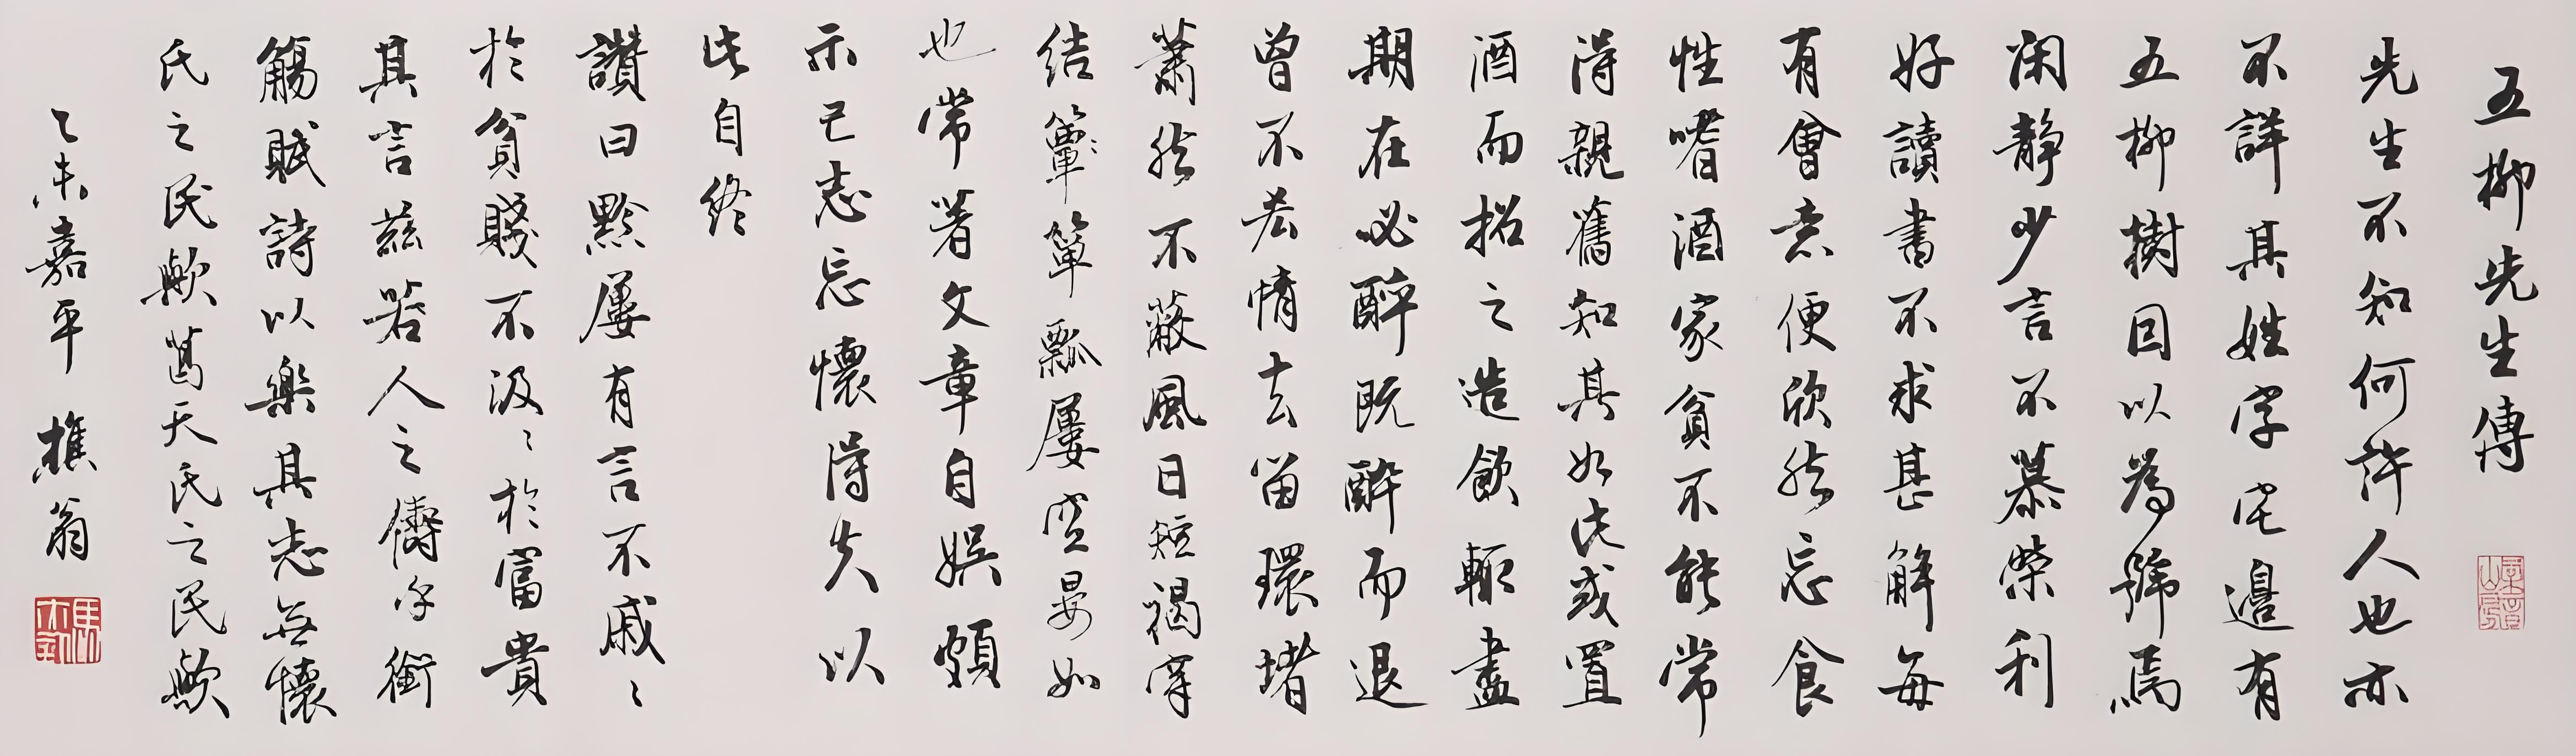 五柳先生傳
先生不知何許人也亦
不詳其姓字宅邊有
五柳樹因以為號焉
閑静少言不慕榮利
好讀書不求甚解每
有會意便欣然忘食
性嗜酒家貧不能常
得親舊知其如此或置
酒而招之造飲輒盡
期在必醉既醉而退
曾不吝情去留環堵
蕭然不蔽風日短褐穿
結簞箪瓢屢空晏如
也常著文章自娛頗
示己志忘懷得失以
此自終
讚曰黔屢有言不戚〻
於貧賤不汲〻於富貴
其言茲若人之儔乎銜
觴賦詩以樂其志無懷
氏之民歟葛天氏之民歟
乙未嘉平 樵翁